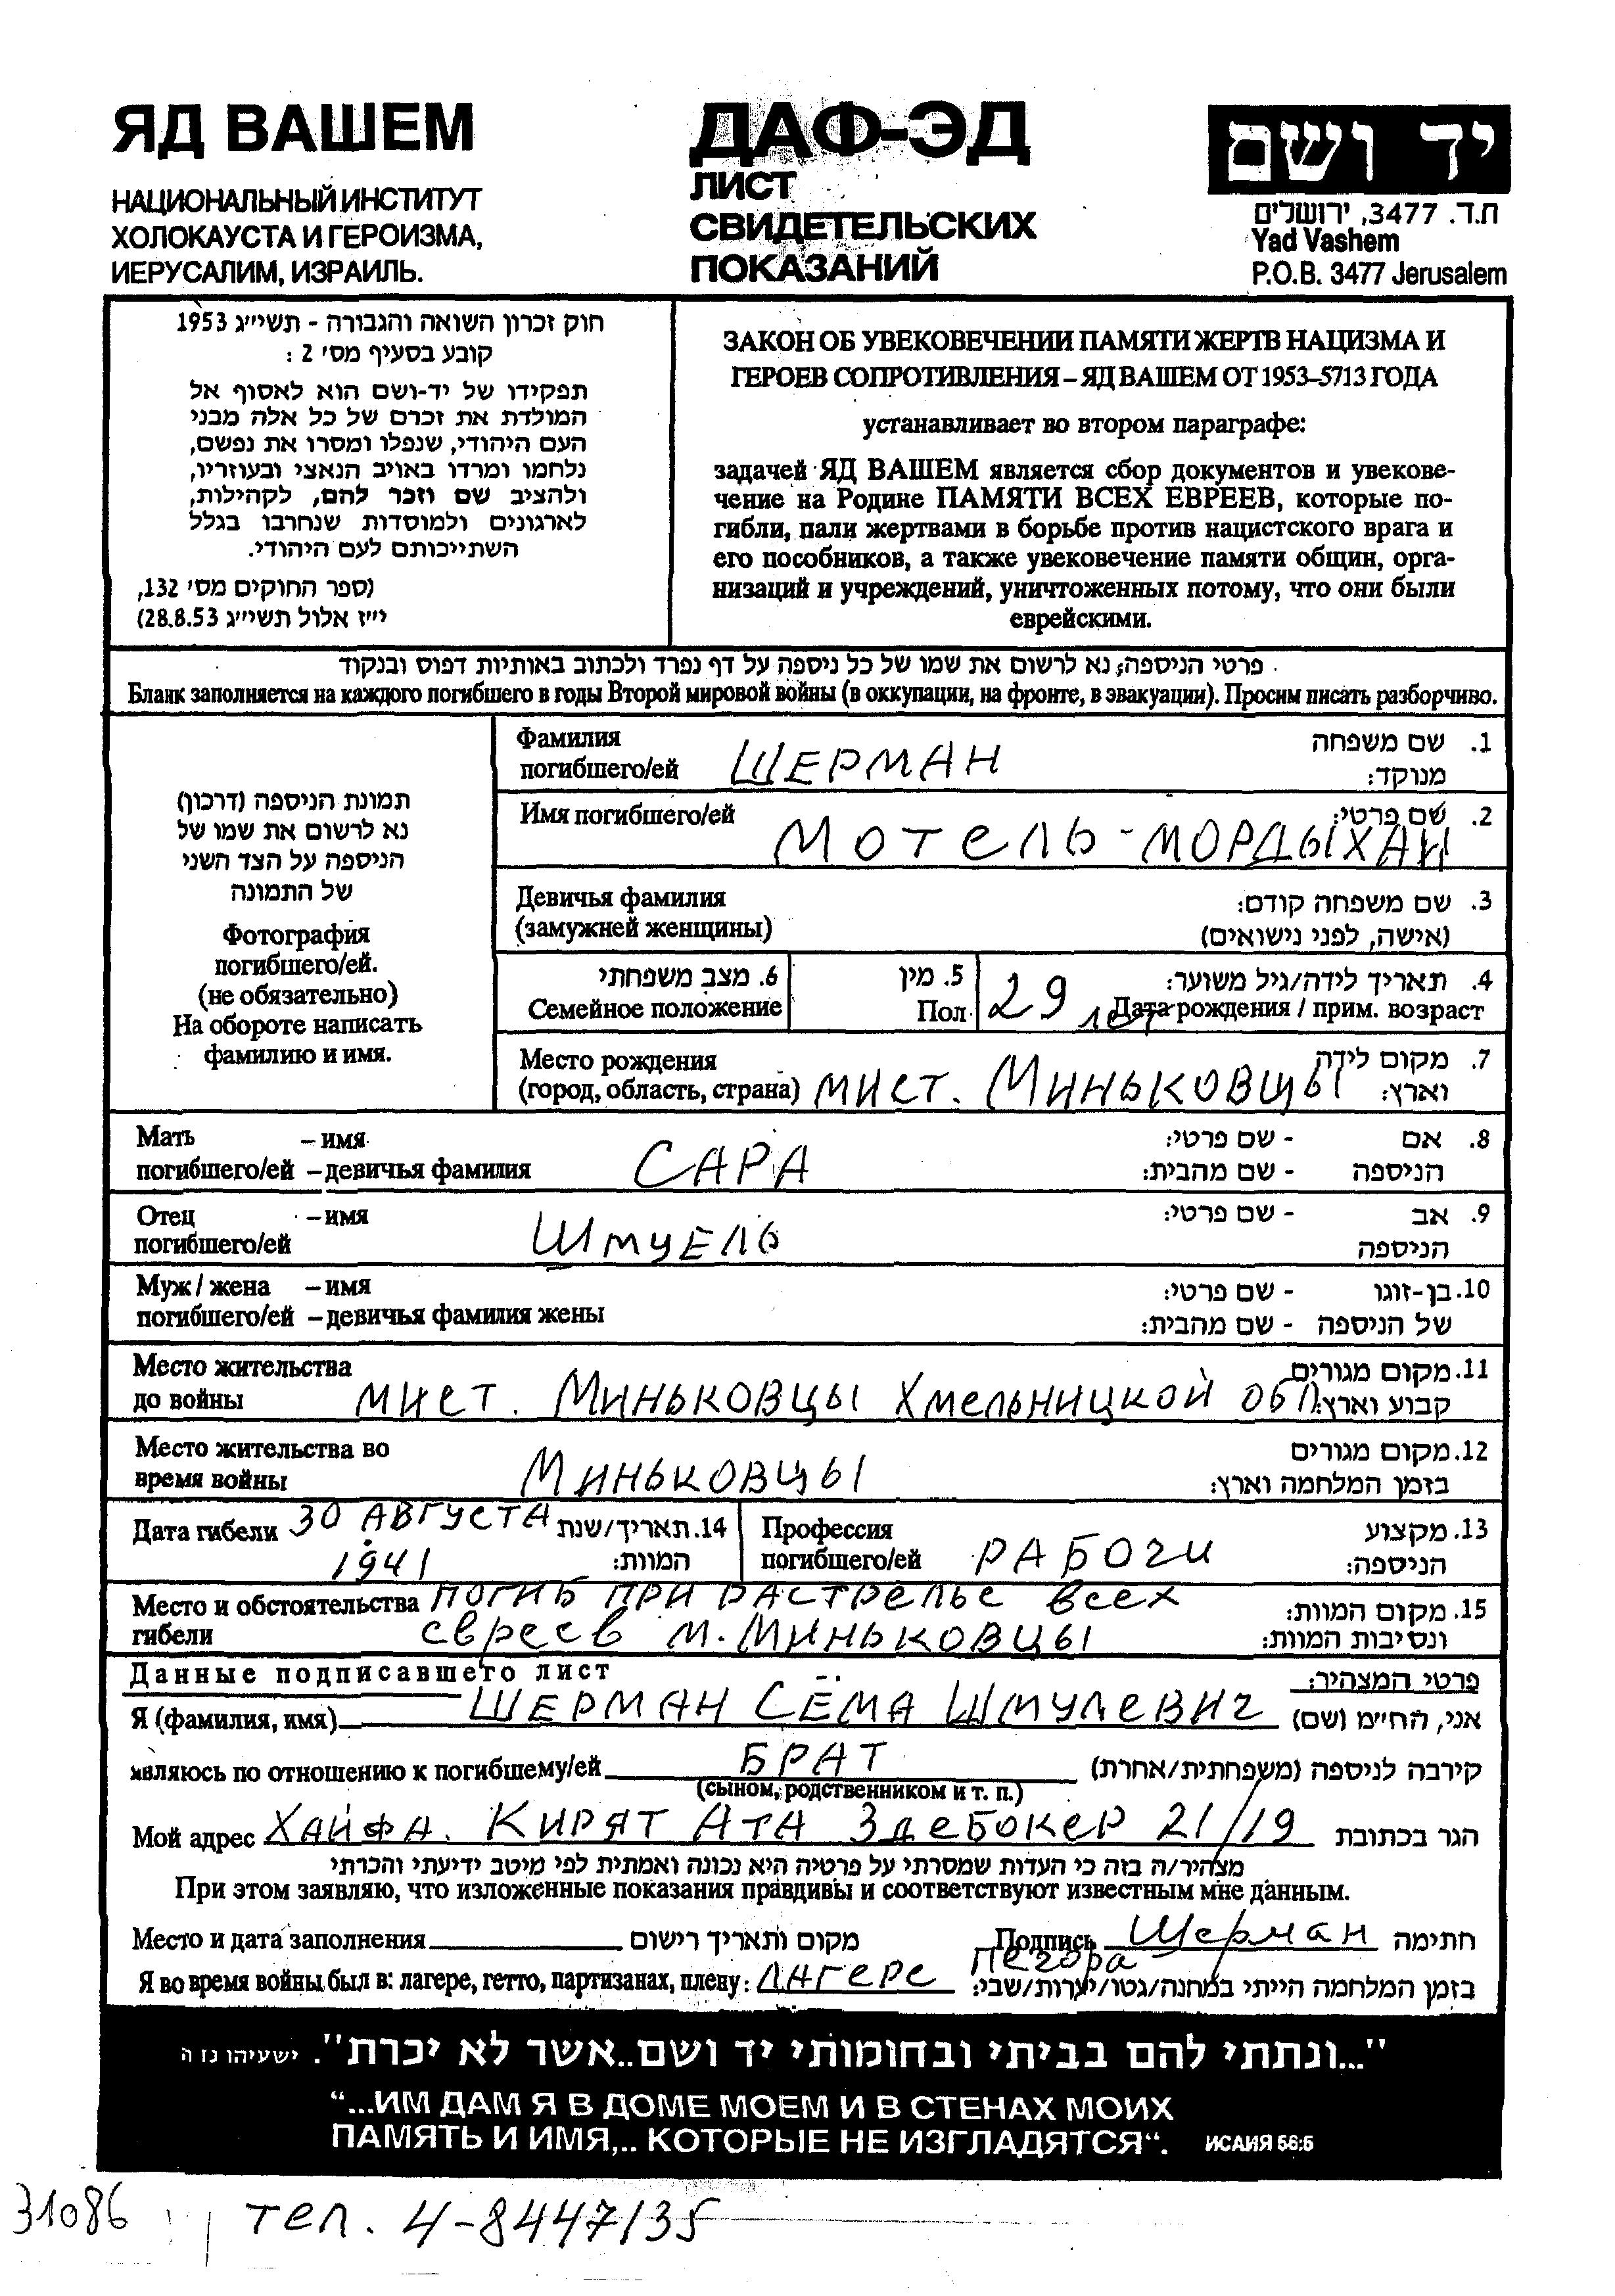 ЯД ВАШЕМ
НАЦИОНАЛЬНЫЙ ИНСТИТУТ
ХОЛОКАУСТА И ГЕРОИЗМА,
ИЕРУСАЛИМ, ИЗРАИЛЬ.
ДАФ-ЭД
ЛИСТ
СВИДЕТЕЛЬСКИХ
ПОКАЗАНИЙ
יד ושם
ת.ד. 3477, ירושלים
Yad Vashem
P.O.B. 3477 Jerusalem
חוק זכרון השואה והגבורה - תשי״ג 1953
קובע בסעיף מס׳ 2 :
תפקידו של יד-ושם הוא לאסוף אל
המולדת את זכרם של כל אלה מבני
העם היהודי, שנפלו ומסרו את נפשם,
נלחמו ומרדו באויב הנאצי ובעוזריו,
ולהציב שם וזכר להם, לקהילות,
לארגונים ולמוסדות שנחרבו בגלל
השתייכותם לעם היהודי.
(ספר החוקים מס׳ 132,
י״ז אלול תשי״ג 28.8.53)
ЗАКОН ОБ УВЕКОВЕЧЕНИИ ПАМЯТИ ЖЕРТВ НАЦИЗМА И
ГЕРОЕВ СОПРОТИВЛЕНИЯ – ЯД ВАШЕМ ОТ 1953–5713 ГОДА
устанавливает во втором параграфе:
задачей ЯД ВАШЕМ является сбор документов и увекове-
чение на Родине ПАМЯТИ ВСЕХ ЕВРЕЕВ, которые по-
гибли, пали жертвами в борьбе против нацистского врага и
его пособников, а также увековечение памяти общин, орга-
низаций и учреждений, уничтоженных потому, что они были
еврейскими.
פרטי הניספה; נא לרשום את שמו של כל ניספה על דף נפרד ולכתוב באותיות דפוס ובנקוד
Бланк заполняется на каждого погибшего в годы Второй мировой войны (в оккупации, на фронте, в эвакуации). Просим писать разборчиво.
תמונת הניספה (דרכון)
נא לרשום את שמו של
הניספה על הצד השני
של התמונה
Фотография
погибшего/ей.
(не обязательно)
На обороте написать
фамилию и имя.
Фамилия 1. שם משפחה
погибшего/ей ШЕРМАН מנוקד:
Имя погибшего/ей 2. שם פרטי:
МОТЕЛЬ-МОРДЫХАЙ
Девичья фамилия 3. שם משפחה קודם:
(замужней женщины) (אישה, לפני נישואים)
6. מצב משפחתי 5. מין 4. תאריך לידה/גיל משוער:
Семейное положение Пол 29 лет Дата рождения / прим. возраст
Место рождения 7. מקום לידה
(город, область, страна) МИСТ. МИНЬКОВЦЫ וארץ:
Мать – имя 8. אם - שם פרטי:
погибшего/ей – девичья фамилия САРА הניספה - שם מהבית:
Отец – имя 9. אב - שם פרטי:
погибшего/ей ШМУЕЛЬ הניספה
Муж / жена – имя 10. בן-זוגו - שם פרטי:
погибшего/ей – девичья фамилия жены של הניספה - שם מהבית:
Место жительства 11. מקום מגורים
до войны МИСТ. МИНЬКОВЦЫ ХМЕЛЬНИЦКОЙ ОБЛ קבוע וארץ:
Место жительства во 12. מקום מגורים
время войны МИНЬКОВЦЫ בזמן המלחמה וארץ:
Дата гибели 30 АВГУСТА 14. תאריך/שנת Профессия 13. מקצוע
1941 המוות: погибшего/ей РАБОЧИ הניספה:
Место и обстоятельства ПОГИБ ПРИ РАСТРЕЛЬЕ ВСЕХ 15. מקום המוות:
гибели ЕВРЕЕВ М. МИНЬКОВЦЫ ונסיבות המוות:
Данные подписавшего лист פרטי המצהיר:
Я (фамилия, имя) ШЕРМАН СЁМА ШМУЛЕВИЧ אני, החי״מ (שם)
являюсь по отношению к погибшему/ей БРАТ קירבה לניספה (משפחתית/אחרת)
(сыном, родственником и т. п.)
Мой адрес ХАЙФА. КИРЯТ АТА ЗДЕБОКЕР 21/19 הגר בכתובת
מצהיר/ה בזה כי העדות שמסרתי על פרטיה היא נכונה ואמתית לפי מיטב ידיעתי והכרתי
При этом заявляю, что изложенные показания правдивы и соответствуют известным мне данным.
Место и дата заполнения מקום ותאריך רישום Подпись Шерман חתימה
Я во время войны был в: лагере, гетто, партизанах, плену: ЛАГЕРЕ Печора בזמן המלחמה הייתי במחנה/גטו/יערות/שבי:
"...ונתתי להם בביתי ובחומותי יד ושם..אשר לא יכרת". ישעיהו נז ה
“...ИМ ДАМ Я В ДОМЕ МОЕМ И В СТЕНАХ МОИХ
ПАМЯТЬ И ИМЯ,.. КОТОРЫЕ НЕ ИЗГЛАДЯТСЯ“. ИСАИЯ 56:5
31086 тел. 4-8447135